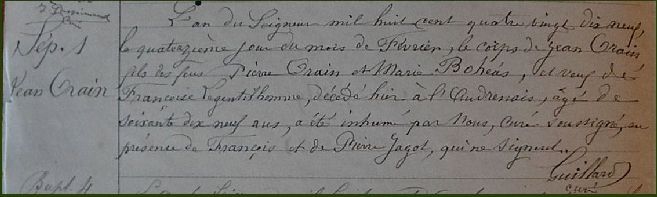 Sép. 1
Jean Orain
L'an du Seigneur mil huit cent quatre vingt dix neuf,
le quatorzième jour du mois de Février, le corps de Jean Orain
fils des feus Pierre Orain et Marie Bohéas, et veuf de
Françoise Legentilhomme, décédé hier à l'Audrenais, âgé de
soixante dix neuf ans, a été inhumé par Nous, curé soussigné, en
présence de François et de Pierre Jagot, qui ne signent.
Guillard
curé
Bapt. 4